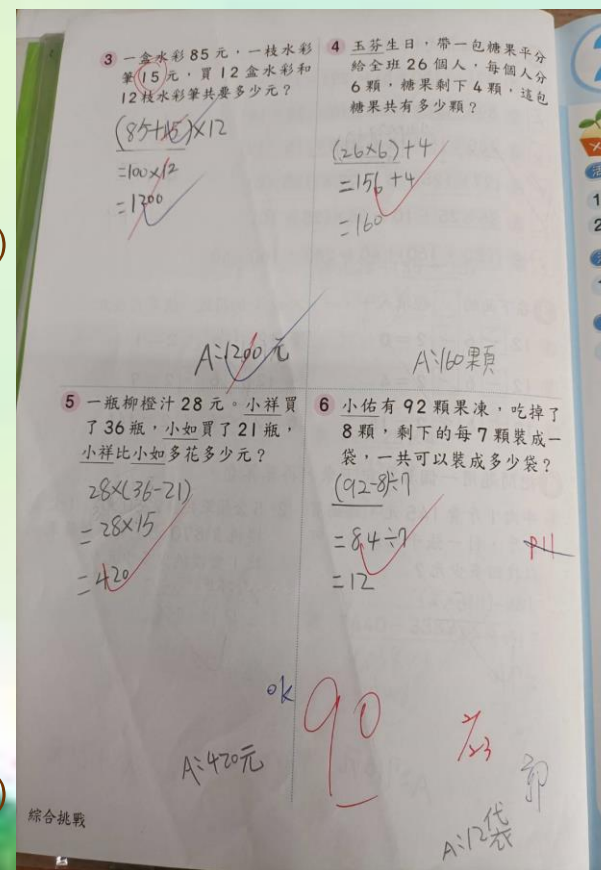 3 一盒水彩85元，一枝水彩
筆15元，買12盒水彩和
12枝水彩筆共要多少元？
(85+15)×12
=100×12
=1200
A:1200元
4 玉芬生日，帶一包糖果平分
給全班26個人，每個人分
6顆，糖果剩下4顆，這包
糖果共有多少顆？
(26×6)+4
=156+4
=160
A:160顆
5 一瓶柳橙汁28元。小祥買
了36瓶，小如買了21瓶，
小祥比小如多花多少元？
28×(36-21)
=28×15
=420
A:420元
6 小佑有92顆果凍，吃掉了
8顆，剩下的每7顆裝成一
袋，一共可以裝成多少袋？
(92-8)÷7
=84÷7
=12
P11
A:12袋
ok
90
2/23
郭
綜合挑戰
1
2